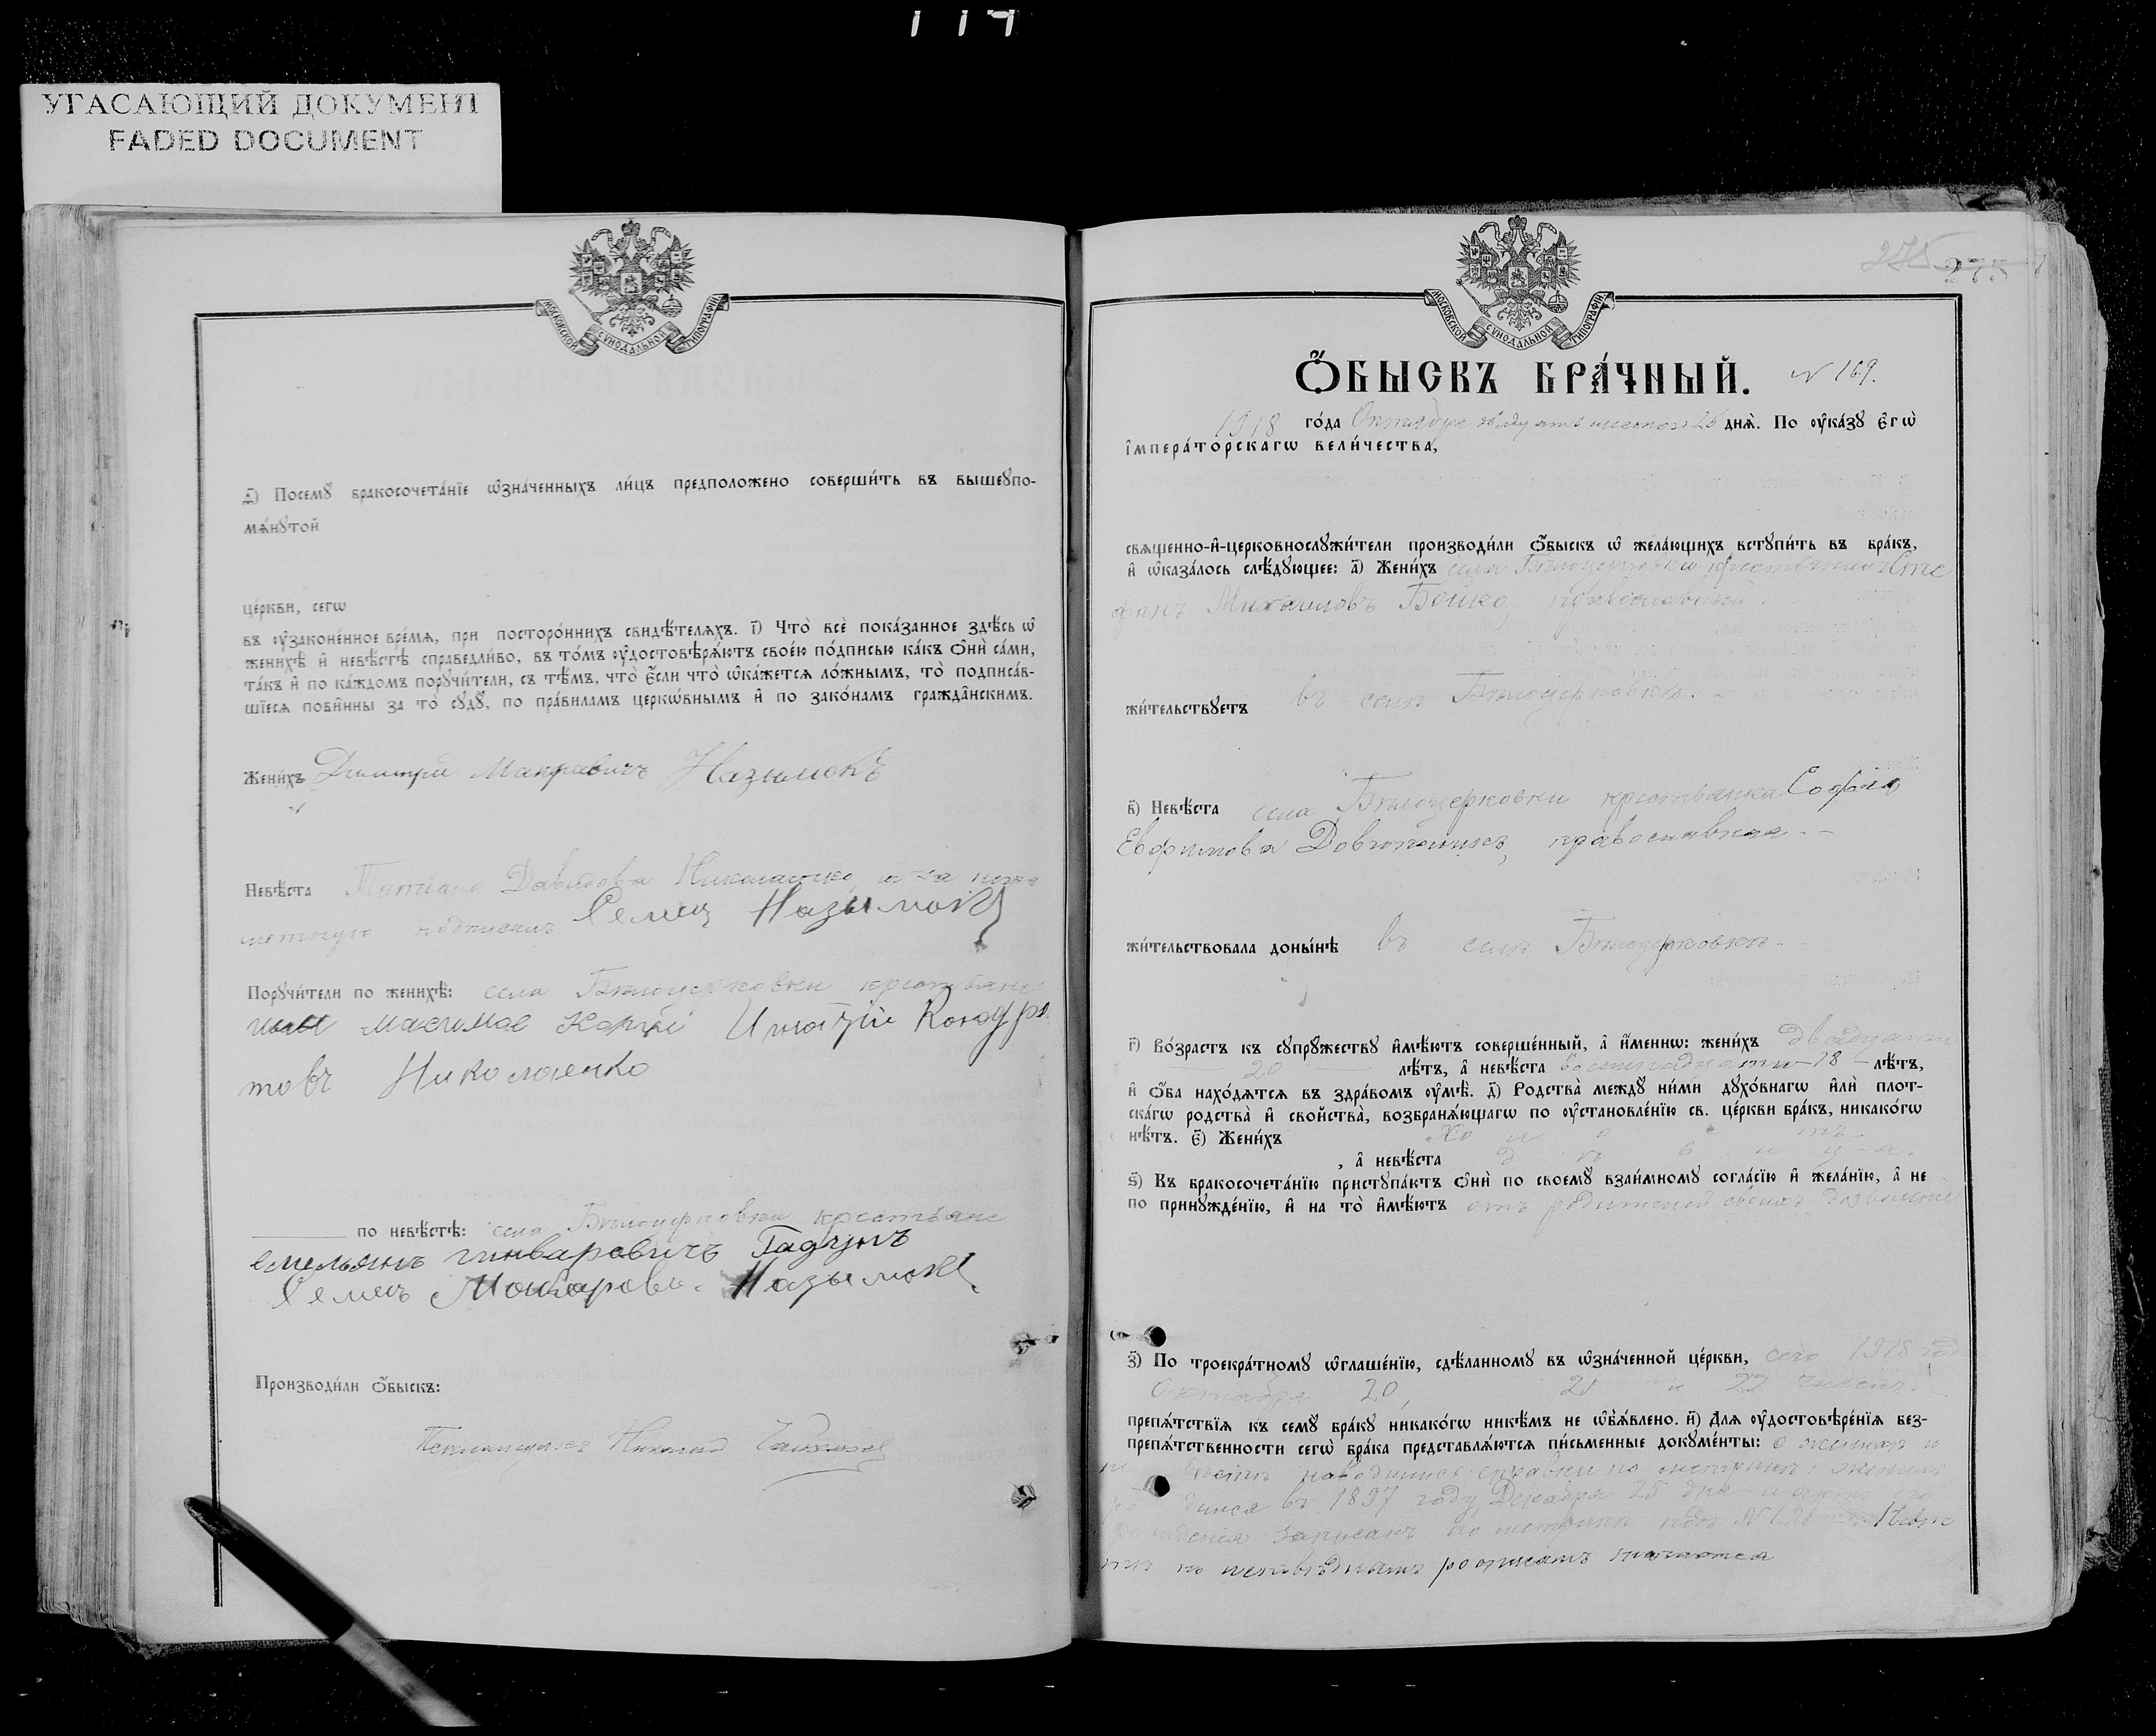 114
УГАСАЮЩИЙ ДОКУМЕНТ
FADED DOCUMENT
МОСКОВСКОЙ СѴНОДАЛЬНОЙ ТИПОГРАФІИ
д҃) Посемꙋ̀ бракосочета́нїе ѡ҆зна́ченныхъ ли́цъ предположено соверши́ть въ вышеꙋпо-
мѧ́нꙋтой
це́ркви, сегѡ̀
въ ᲂу҆законе́нное вре́мѧ, при посторо́ннихъ свидѣ́телѧхъ. і҃) Что̀ всѐ пока́занное здѣ́сь ѡ҆
женихѣ̀ и҆ невѣ́стѣ справедли́во, въ то́мъ ᲂу҆достовѣрѧ́ютъ свое́ю по́дписью ка́къ ѻ҆нѝ са́ми,
та́къ и҆ по ка́ждомъ порꙋчи́тели, съ тѣ́мъ, что̀ є҆́сли что̀ ѡ҆ка́жетсѧ ло́жнымъ, то̀ подписа́в-
шїесѧ пови́нны за то̀ сꙋдꙋ̀, по пра́виламъ церко́внымъ и҆ по зако́намъ гражда́нскимъ.
Жени́хъ Дмитрій Макаровичъ Назымокъ
Невѣ́ста Татіана Давидова Николаенко, а за негра
мотную подписалъ Семен Назымокъ
Порꙋчи́тели по женихѣ̀: села Бѣлоцерковки крестьяне
Игнатій Кондра
товъ Николаенко
по невѣ́стѣ: села Бѣлоцерковки крестьяне
емельянъ
Семенъ Макаровъ Назымокъ
Производи́ли ѻ҆́быскъ:
Псаломщикъ Николай
МОСКОВСКОЙ СѴНОДАЛЬНОЙ ТИПОГРАФІИ
275 275
Ѻ҆́БЫСКЪ БРА́ЧНЫЙ. N 169.
1918 го́да Октября двадцать шестого 26 днѧ̀. По ᲂу҆ка́зꙋ є҆гѡ̀
і҆мпера́торскагѡ вели́чества,
свѧще́нно-и҆-церковнослꙋжи́тели производи́ли ѻ҆́быскъ ѡ҆ жела́ющихъ встꙋпи́ть въ бра́къ,
и҆ ѡ҆каза́лось слѣ́дꙋющее: а҃) Жени́хъ села Бѣлоцерковки крестьянинъ Сте
фанъ Михаиловъ Бойко, православный.
жи́тельствꙋетъ въ селѣ Бѣлоцерковкѣ.
в҃) Невѣ́ста села Бѣлоцерковки крестьянка Софія
Евфимова православная
жи́тельствовала доны́нѣ въ селѣ Бѣлоцерковкѣ
г҃) Во́зрастъ къ сꙋпрꙋ́жествꙋ и҆мѣ́ютъ соверше́нный, а҆ и҆́меннѡ: жени́хъ двадцати
20 лѣ́тъ, а҆ невѣ́ста восемнадцати 18 лѣ́тъ,
и҆ ѻ҆́ба нахо́дѧтсѧ въ здра́вомъ ᲂу҆мѣ̀. д҃) Родства̀ междꙋ̀ ни́ми дꙋхо́внагѡ и҆лѝ плот-
ска́гѡ родства̀ и҆ сво́йства̀, возбранѧ́ющагѡ по ᲂу҆становле́нїю св. це́ркви бра́къ, никако́гѡ
нѣ́тъ. є҃) Жени́хъ холостъ
, а҆ невѣ́ста дѣвица.
ѕ҃) Къ бракосочета́нїю пристꙋпа́ютъ ѻ҆нѝ по своемꙋ̀ взаи́мномꙋ согла́сїю и҆ жела́нїю, а҆ не
по принꙋжде́нїю, и҆ на то̀ и҆мѣ́ютъ отъ родителей своихъ дозволеніе
з҃) По троекра́тномꙋ ѡ҆глаше́нїю, сдѣ́ланномꙋ въ ѡ҆зна́ченной це́ркви, сего 1918 года
Октября 20, 21 и 22 чиселъ.
препѧ́тствїѧ къ семꙋ̀ бра́кꙋ никако́гѡ никѣ́мъ не ѡ҆б̾ѧ́влено. и҃) Для ᲂу҆достовѣре́нїѧ без-
препѧ́тственности сегѡ̀ бра́ка представлѧ́ютсѧ пи́сьменные докꙋме́нты: о женихѣ и
не вѣстѣ наводились справки по метрикѣ: женихъ
ро дился въ 1897 году Декабря 25 дня и актъ его
рожденія записанъ по метрикѣ подъ N 131 Невѣс
та по исповѣднымъ росписямъ значится